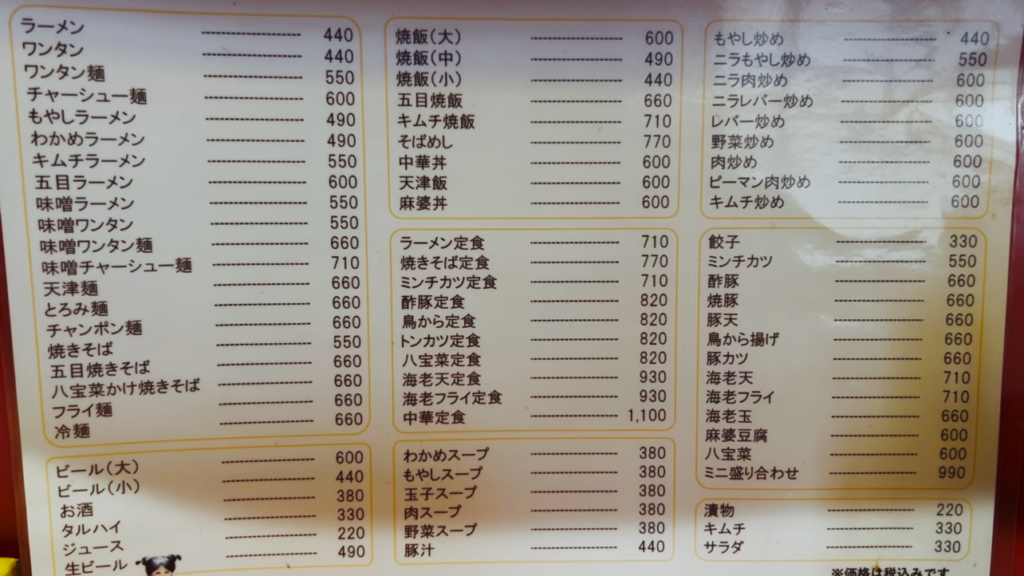 ラーメン ---------- 440
ワンタン ---------- 440
ワンタン麺 ---------- 550
チャーシュー麺 ---------- 600
もやしラーメン ---------- 490
わかめラーメン ---------- 490
キムチラーメン ---------- 550
五目ラーメン ---------- 600
味噌ラーメン ---------- 550
味噌ワンタン ---------- 550
味噌ワンタン麺 ---------- 660
味噌チャーシュー麺 ---------- 710
天津麺 ---------- 660
とろみ麺 ---------- 660
チャンポン麺 ---------- 660
焼きそば ---------- 550
五目焼きそば ---------- 660
八宝菜かけ焼きそば ---------- 660
フライ麺 ---------- 660
冷麺 ---------- 660
ビール(大) ---------- 600
ビール(小) ---------- 440
お酒 ---------- 380
タルハイ ---------- 330
ジュース ---------- 220
生ビール ---------- 490
焼飯(大) ---------- 600
焼飯(中) ---------- 490
焼飯(小) ---------- 440
五目焼飯 ---------- 660
キムチ焼飯 ---------- 710
そばめし ---------- 770
中華丼 ---------- 600
天津飯 ---------- 600
麻婆丼 ---------- 600
ラーメン定食 ---------- 710
焼きそば定食 ---------- 770
ミンチカツ定食 ---------- 710
酢豚定食 ---------- 820
鳥から定食 ---------- 820
トンカツ定食 ---------- 820
八宝菜定食 ---------- 820
海老天定食 ---------- 930
海老フライ定食 ---------- 930
中華定食 ---------- 1,100
わかめスープ ---------- 380
もやしスープ ---------- 380
玉子スープ ---------- 380
肉スープ ---------- 380
野菜スープ ---------- 380
豚汁 ---------- 440
もやし炒め ---------- 440
ニラもやし炒め ---------- 550
ニラ肉炒め ---------- 600
ニラレバー炒め ---------- 600
レバー炒め ---------- 600
野菜炒め ---------- 600
肉炒め ---------- 600
ピーマン肉炒め ---------- 600
キムチ炒め ---------- 600
餃子 ---------- 330
ミンチカツ ---------- 550
酢豚 ---------- 660
焼豚 ---------- 660
豚天 ---------- 660
鳥から揚げ ---------- 660
豚カツ ---------- 660
海老天 ---------- 710
海老フライ ---------- 710
海老玉 ---------- 660
麻婆豆腐 ---------- 600
八宝菜 ---------- 600
ミニ盛り合わせ ---------- 990
漬物 ---------- 220
キムチ ---------- 330
サラダ ---------- 330
※価格は税込みです